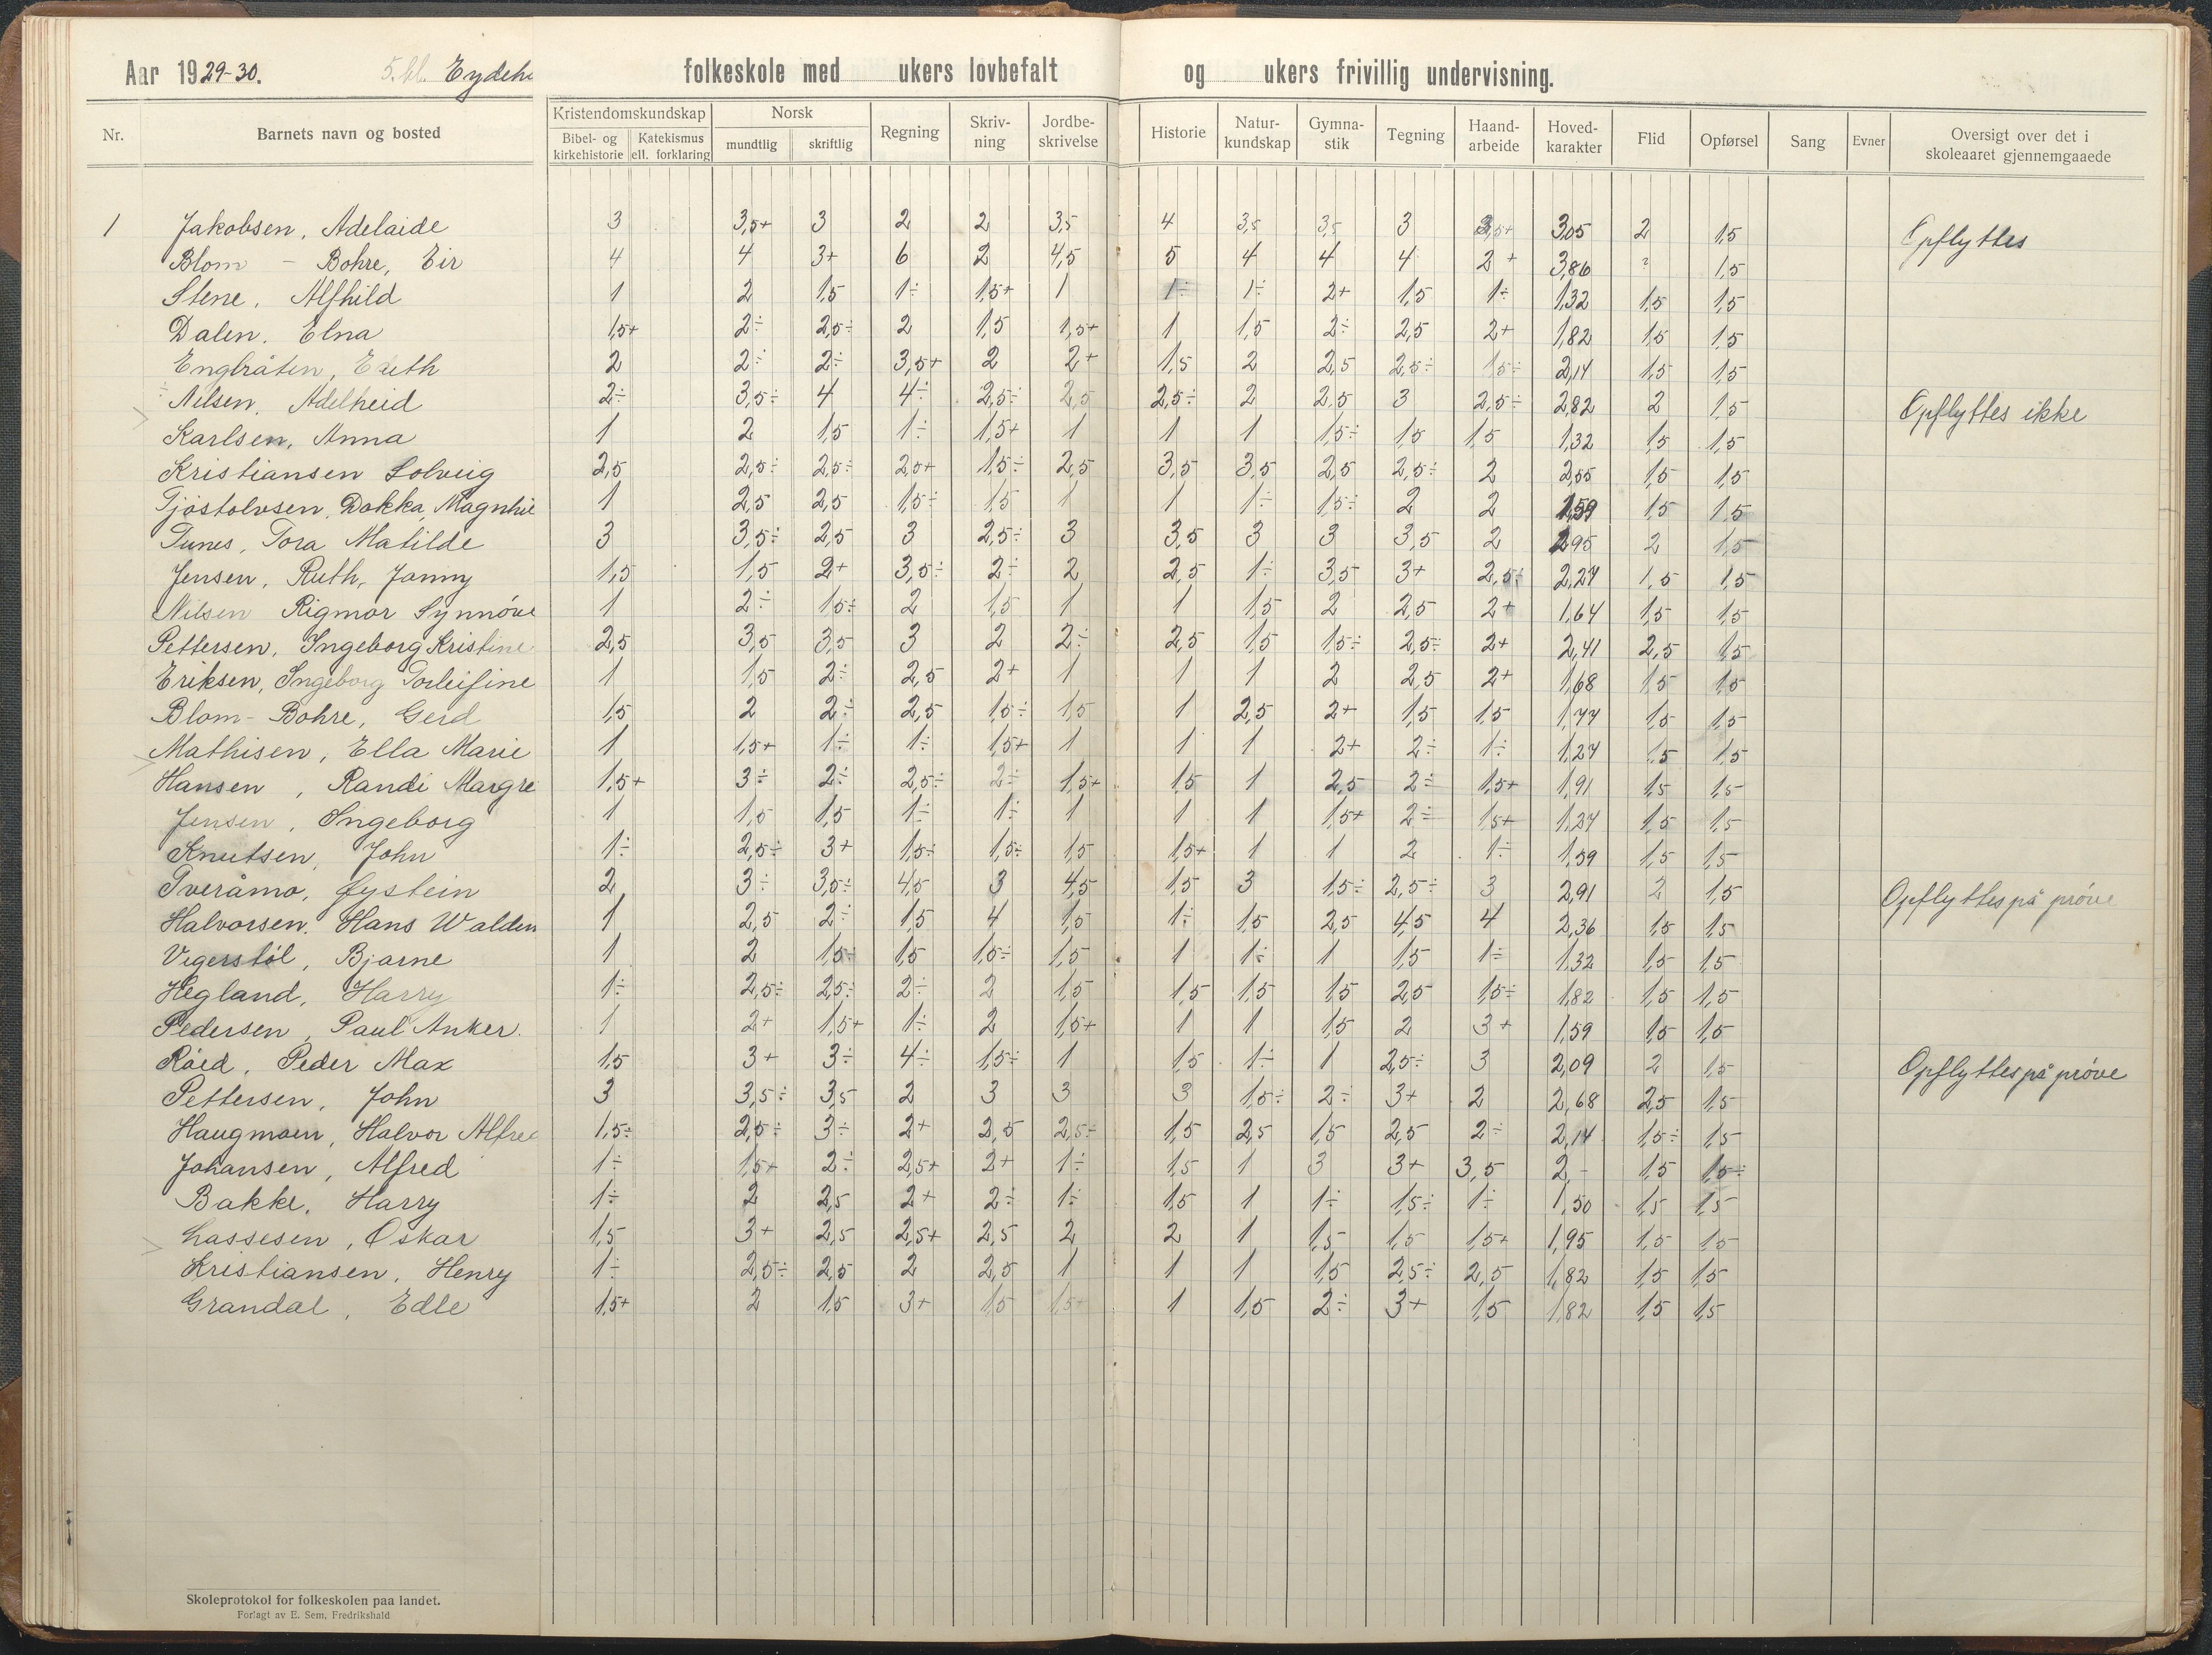 Aar 1929-30. 5. kl. Eydeh folkeskole med ukers lovbefalt og ukers frivillig undervisning.
Nr. Barnets navn og bosted Kristendomskundskap Bibel- og kirkehistorie Katekismus ell. forklaring Norsk mundtlig skriftlig Regning Skriv-ning Jordbe-skrivelse Historie Natur-kundskap Gymna-stik Tegning Haand-arbeide Hoved-karakter Flid Opførsel Sang Evner Oversigt over det i skoleaaret gjennemgaaede
1 Jakobsen, Adelaide 3 3,5+ 3 2 2 3,5 4 3,5 3,5 3 3,5+ 3,05 2 1,5 Opflyttes
Blom - Bohre, Eir 4 4 3+ 6 2 4,5 5 4 4 4 2+ 3,86 ? 1,5
Stene, Alfhild 1 2 1,5 1÷ 1,5+ 1 1÷ 1÷ 2+ 1,5 1÷ 1,32 1,5 1,5
Dalen, Elna 1,5+ 2÷ 2,5÷ 2 1,5 1,5+ 1 1,5 2÷ 2,5 2+ 1,82 1,5 1,5
Englråten, Edith 2 2÷ 2÷ 3,5+ 2 2+ 1,5 2 2,5 2,5÷ 1,5÷ 2,14 1,5 1,5
÷ Nilsen, Adelheid 2÷ 3,5÷ 4 4÷ 2,5÷ 2,5 2,5÷ 2 2,5 3 2,5÷ 2,82 2 1,5 Opflyttes ikke
Karlsen, Anna 1 2 1,5 1÷ 1,5+ 1 1 1 1,5÷ 1,5 1,5 1,32 1,5 1,5
Kristiansen Solveig 2,5 2,5÷ 2,5÷ 2,5+ 1,5÷ 2,5 3,5 3,5 2,5 2,5÷ 2 2,55 1,5 1,5
Tjøstolvsen, Dokka, Magnhil 1 2,5 2,5 1,5÷ 1,5 1 1 1÷ 1,5÷ 2 2 1,59 1,5 1,5
Tunes, Tora Matilde 3 3,5÷ 2,5 3 2,5÷ 3 3,5 3 3 3,5 2 2,95 2 1,5
Jensen, Ruth, Janny 1,5 1,5 2+ 3,5÷ 2÷ 2 2,5 1÷ 3,5 3+ 2,5+ 2,27 1,5 1,5
Nilsen Rigmor Synnöve 1 2÷ 1,5÷ 2 1,5 1 1 1,5 2 2,5 2+ 1,64 1,5 1,5
Pettersen, Ingeborg Kristine 2,5 3,5 3,5 3 2 2÷ 2,5 1,5 1,5÷ 2,5÷ 2+ 2,41 2,5 1,5
Eriksen, Ingeborg Torleifine 1 1,5 2÷ 2,5 2+ 1 1 1 2 2,5 2+ 1,68 1,5 1,5
Blom-Bohre, Gerd 1,5 2 2÷ 2,5 1,5÷ 1,5 1 2,5 2+ 1,5 1,5 1,77 1,5 1,5
Mathisen, Ella Marie 1 1,5+ 1÷ 1÷ 1,5+ 1 1 1 2+ 2÷ 1÷ 1,27 1,5 1,5
Hansen, Randi Margre 1,5+ 3÷ 2÷ 2,5÷ 2÷ 1,5+ 1,5 1 2,5 2÷ 1,5+ 1,91 1,5 1,5
Jensen, Ingeborg 1 1,5 1,5 1÷ 1÷ 1 1 1 1,5+ 2÷ 1,5+ 1,27 1,5 1,5
Knutsen, John 1÷ 2,5÷ 3+ 1,5÷ 1,5÷ 1,5 1,5+ 1 1 2 1÷ 1,59 1,5 1,5
Tveråmo, Øystein 2 3÷ 3,5÷ 4,5 3 4,5 1,5 3 1,5÷ 2,5÷ 3 2,91 2 1,5 Opflyttes på prøve
Halvorsen, Hans Waldem 1 2,5 2÷ 1,5 4 1,5 1÷ 1,5 2,5 4,5 4 2,36 1,5 1,5
Vigerstöl, Bjarne 1 2 1,5÷ 1,5 1,5÷ 1,5 1 1÷ 1 1,5 1÷ 1,32 1,5 1,5
Hegland, Harry 1÷ 2,5÷ 2,5÷ 2÷ 2 1,5 1,5 1,5 1,5 2,5 1,5÷ 1,82 1,5 1,5
Pedersen, Paul Anker. 1 2+ 1,5+ 1÷ 2 1,5+ 1 1 1,5 2 3+ 1,59 1,5 1,5
Röed, Peder Max 1,5 3+ 3÷ 4÷ 1,5÷ 1 1,5 1÷ 1 2,5÷ 3 2,09 2 1,5 Opflyttes på prøve
Pettersen, John 3 3,5÷ 3,5 2 3 3 3 1,5÷ 2÷ 3+ 2 2,68 2,5 1,5
Haugmoen, Halvor Alfred 1,5÷ 2,5÷ 3÷ 2+ 2,5 2,5÷ 1,5 2,5 1,5 2,5 2÷ 2,14 1,5÷ 1,5
Johansen, Alfred 1÷ 1,5+ 2÷ 2,5+ 2+ 1÷ 1,5 1 3 3+ 3,5 2,- 1,5 1,5÷
Bakke, Harry 1÷ 2 2,5 2+ 2÷ 1÷ 1,5 1 1÷ 1,5÷ 1÷ 1,50 1,5 1,5
Lassesen, Oskar 1,5 3+ 2,5 2,5+ 2,5 2 2 1 1,5 1,5 1,5+ 1,95 1,5 1,5
Kristiansen, Henry 1÷ 2,5÷ 2,5 2 2,5 1 1 1 1,5 2,5÷ 2,5 1,82 1,5 1,5
Grandal, Edle 1,5+ 2 1,5 3+ 1,5 1,5+ 1 1,5 2÷ 3+ 1,5 1,82 1,5 1,5
Skoleprotokol for folkeskolen paa landet.
Forlagt av E. Sem, Fredrikshald